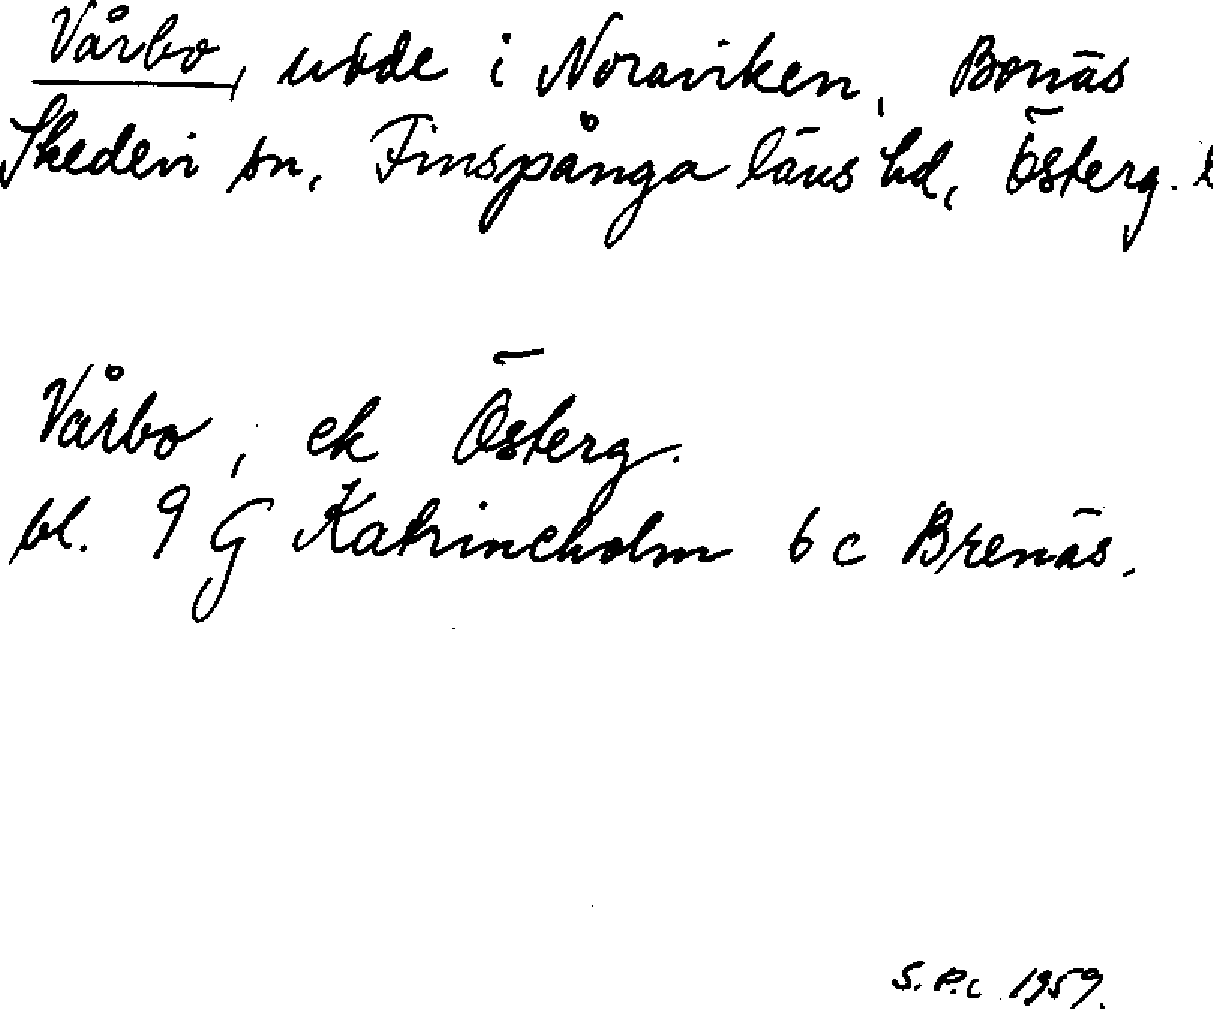 Vårbo, udde i Noraviken, Bonäs
Skedevi sn, Finspånga läns hd, Österg. l
Vårbo, ek Österg.
bl. 9 G Katrineholm 6 c Brenäs.
S.P.c 1959.